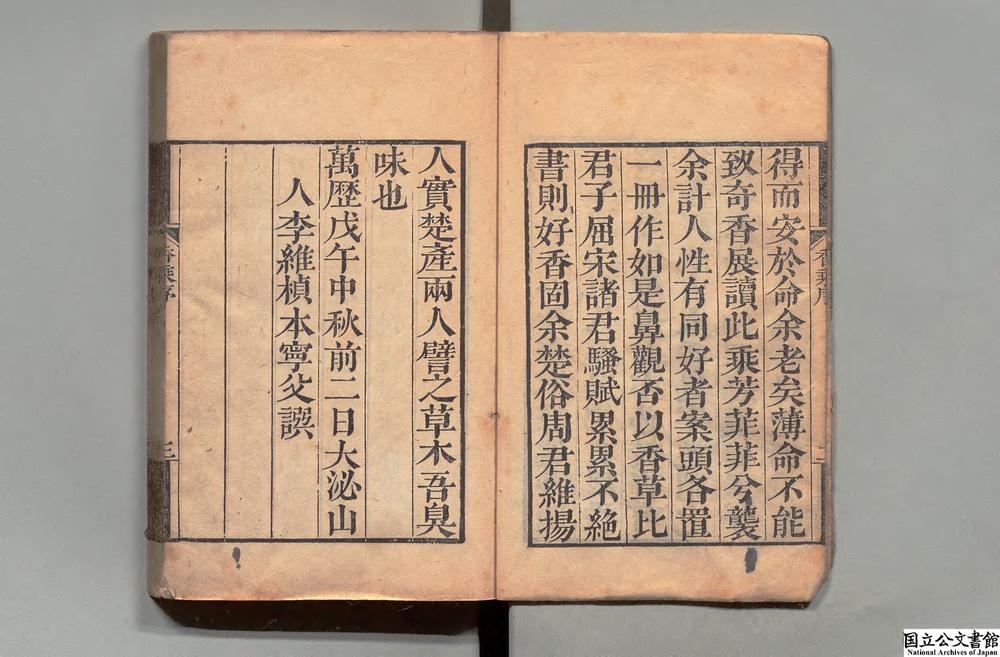 得而安於命余老矣薄命不能
致奇香展讀此乘芳菲菲兮襲
余計人性有同好者案頭各置
一冊作如是鼻觀否以香草比
君子屈宋諸君騷賦累累不絕
書則好香固余楚俗周君維揚
人實楚產兩人譬之草木吾臭
味也
萬歷戊午中秋前二日大泌山
人李維楨本寧父譔
香乘序
三
国立公文書館
National Archives of Japan